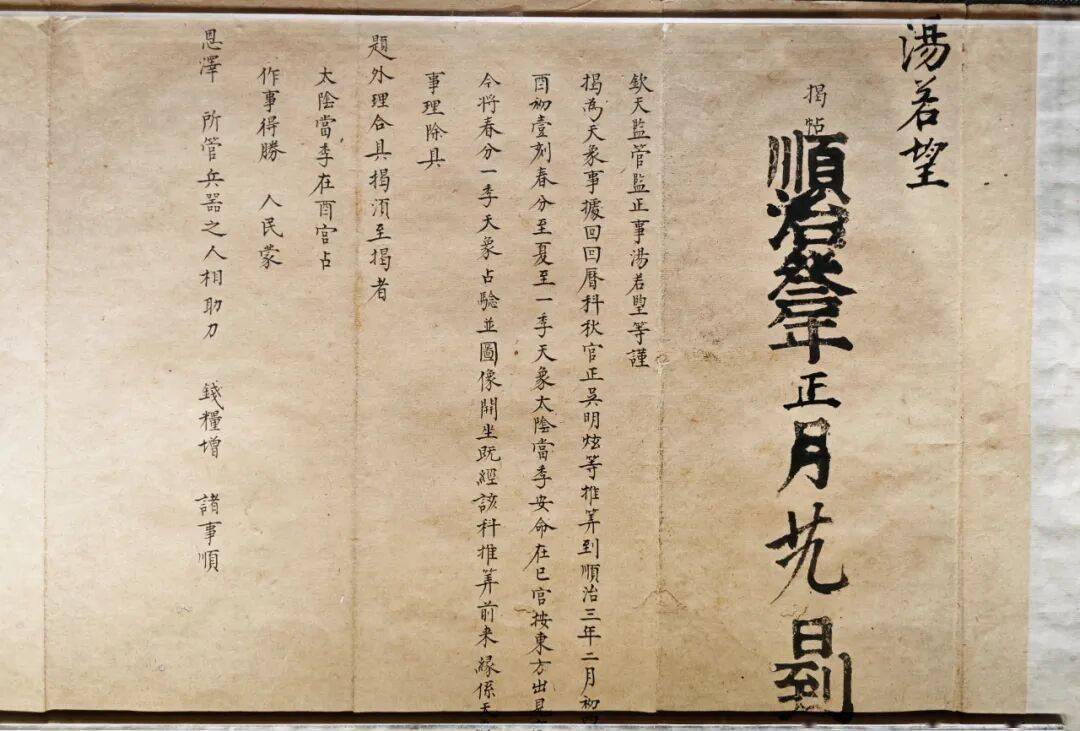 湯若望
揭帖
順治叄年正月廿九日到
欽天監管監正事湯若望等謹
揭為天象事據回回曆科秋官正吳明炫等推筭到順治三年二月初
酉初壹刻春分至夏至一季天象太陰當季安命在巳宮按東方出見
今將春分一季天象占驗並圖像開坐既經該科推筭前来緣係天
事理除具
題外理合具揭須至揭者
太陰當季在酉宮占
作事得勝 人民蒙
恩澤 所管兵器之人相助力 錢糧增 諸事順